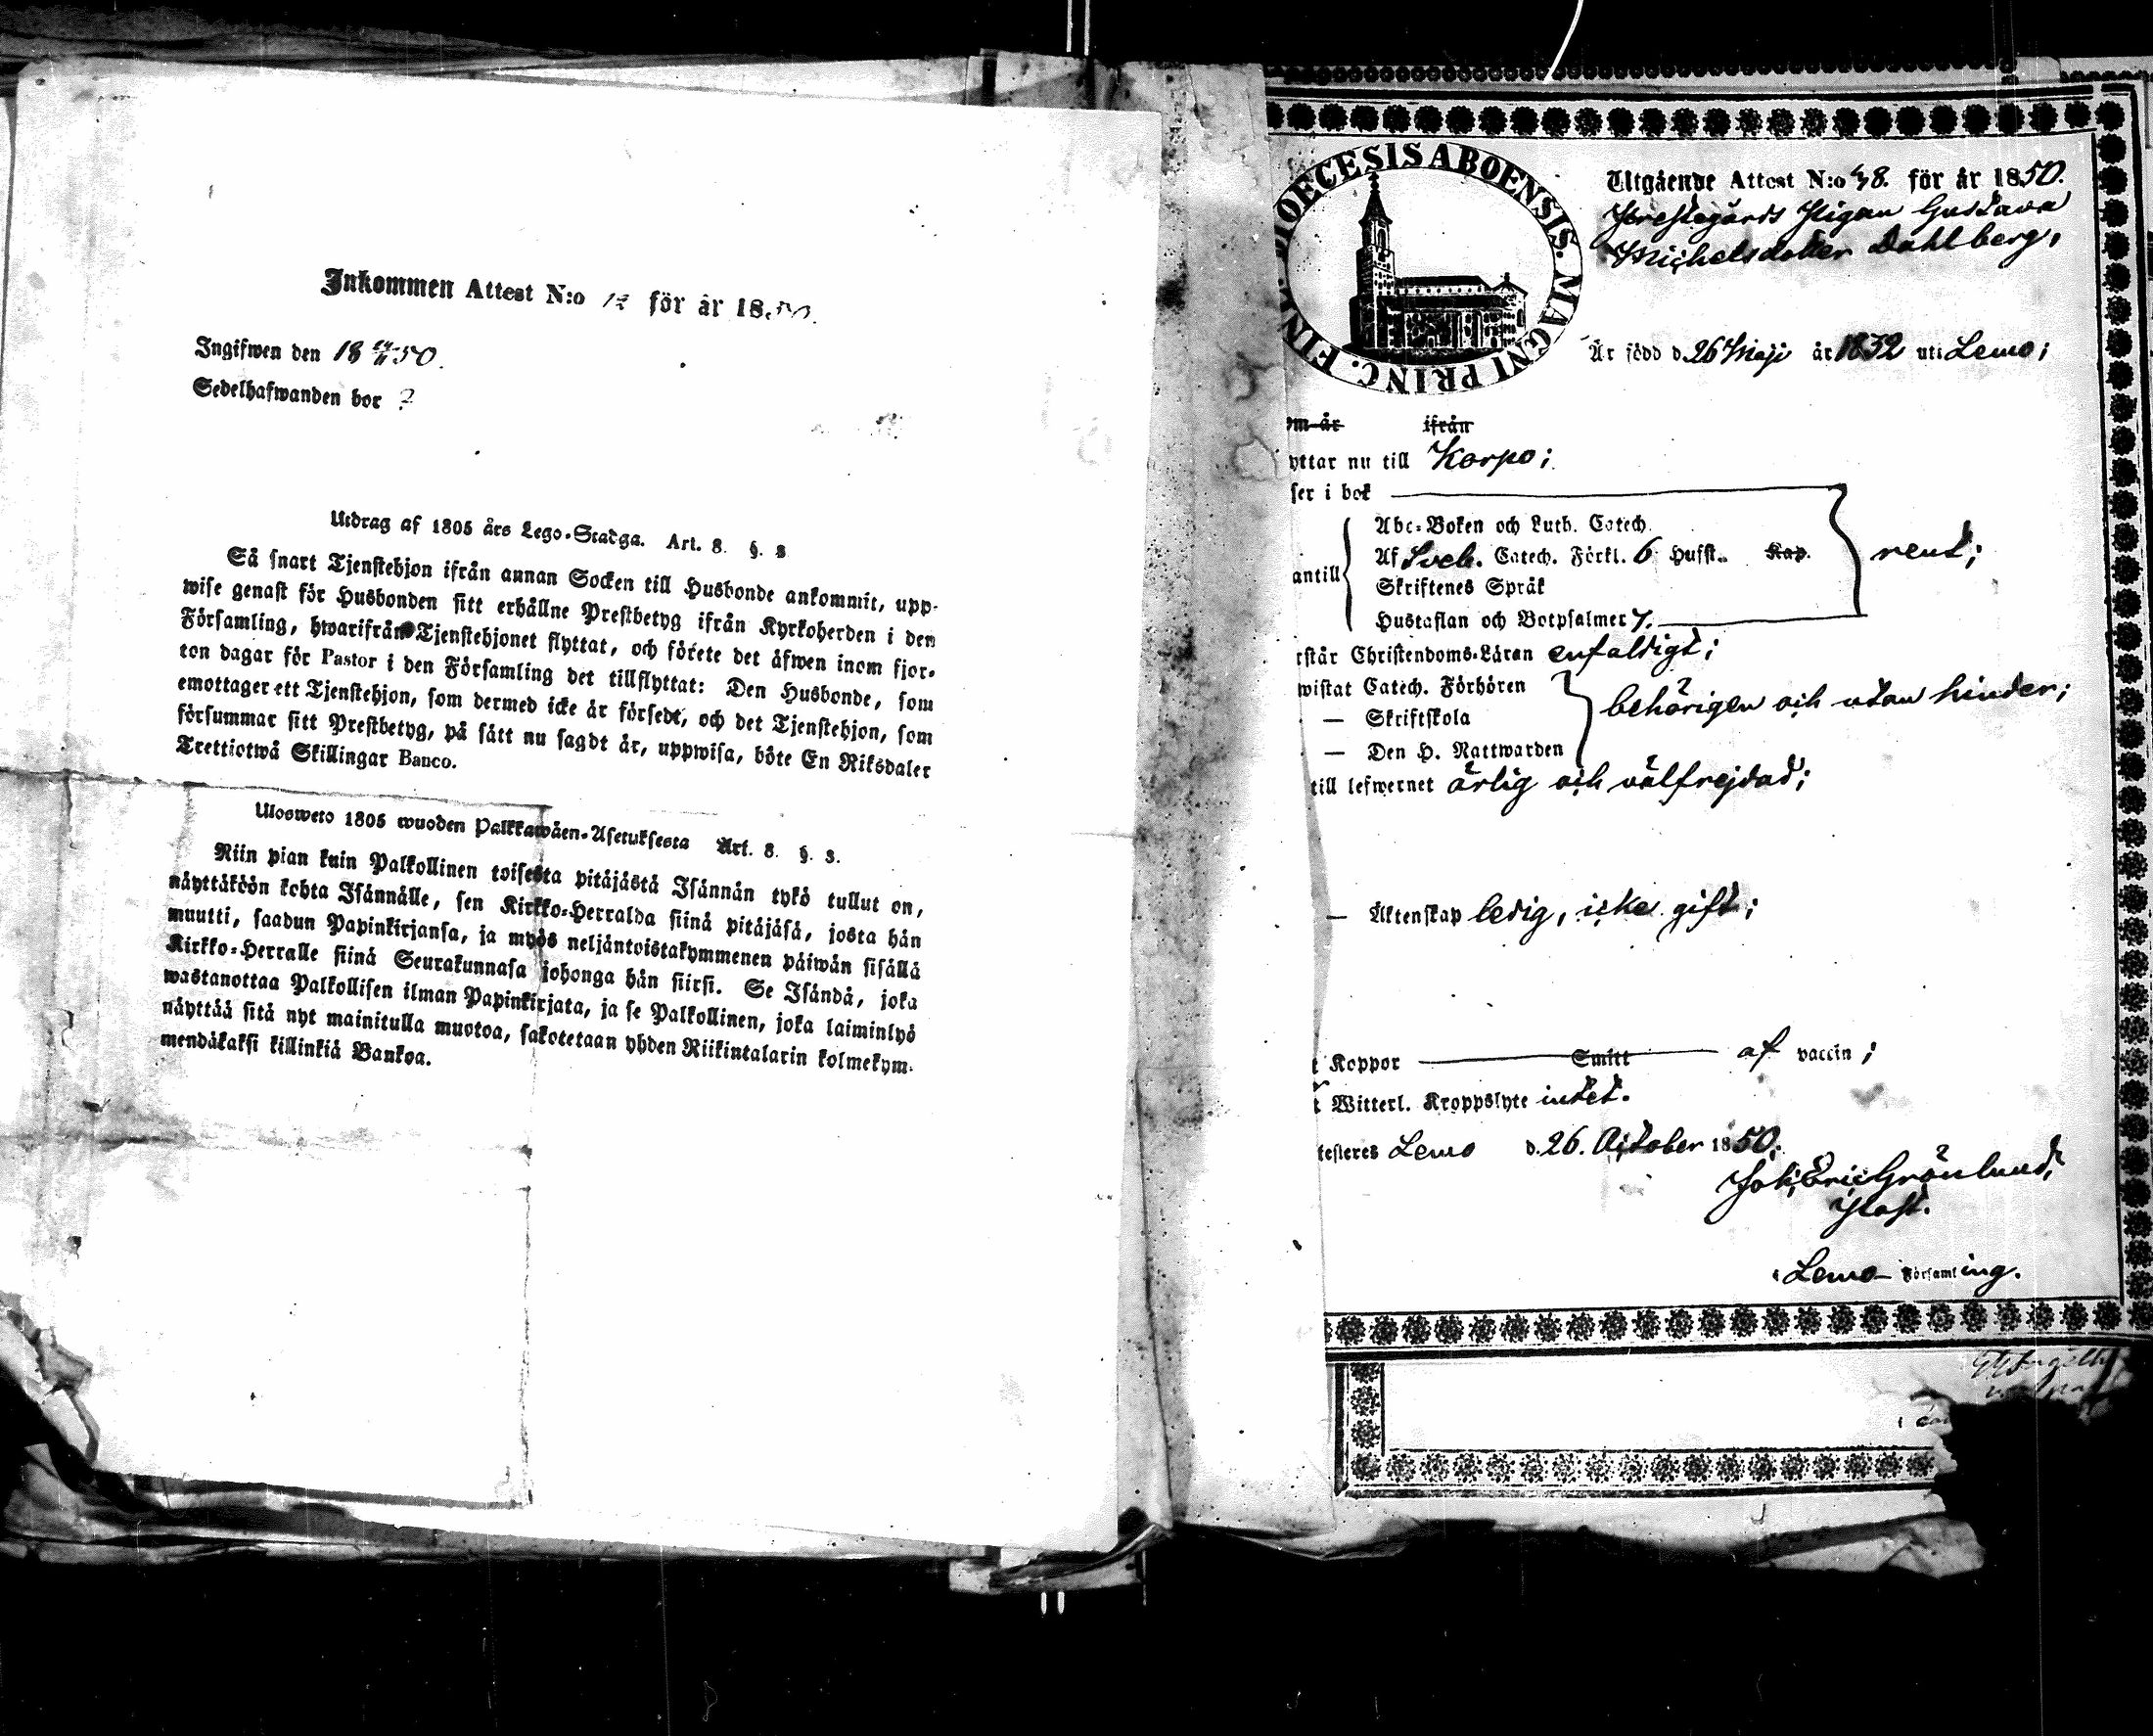 Inkommen Attest N:o 12 för år 1850.
Ingifwen den 18 50.
Sedelhafwanden bor ?
Utdrag af 1805 års Lego-Stadga. Art. 8. §. 3
Så snart Tjenstehjon ifrån annan Socken till Husbonde ankommit, upp-
wise genast för Husbonden sitt erhållne Prestbetyg ifrån Kyrkoherden i den
Församling, hwarifrån Tjenstehjonet flyttat, och förete det äfwen inom fjor-
ton dagar för Pastor i den Församling det tillflyttat: Den Husbonde, som
emottager ett Tjenstehjon, som dermed icke är försedt, och det Tjenstehjon, som
försummar sitt Prestbetyg, på sätt nu sagdt är, uppwisa, böte En Riksdaler
Trettiotwå Skillingar Banco.
Ulosweto 1805 wuoden Palkkawäen-Asetuksesta Art. 8. §. 3.
Niin pian kuin Palkollinen toisesta pitäjästä Isännän tykö tullut on,
näyttäköön kohta Isännälle, sen Kirkko-Herralda siinä pitäjäsä, josta hän
muutti, saadun Papinkirjansa, ja myös neljäntoistakymmenen päiwän sisällä
Kirkko-Herralle siinä Seurakunnasa johonga hän siirsi. Se Isändä, joka
wastanottaa Palkollisen ilman Papinkirjata, ja se Palkollinen, joka laiminlyö
näyttää sitä nyt mainitulla muotoa, sakotetaan yhden Riikintalarin kolmekym-
mendäkaksi killinkiä Bankoa.
DIOECESIS ABOENSIS. MAGNI PRINC. FINL.
Utgående Attest N:o 48. för år 1850.
Prestegårds Pigan Gustava
Michelsdotter Dahlberg,
Är född d. 26 Maji år 1832 uti Lemo;
om år ifrån
yttar nu till Korpo;
ser i bok
Abc-Boken och Luth. Catech.
Af Sveb. Catech. Förkl. 6 Hufst. Kap. rent;
antill
Skriftenes Språk
Hustaflan och Botpsalmer 7.
rstår Christendoms-Läran enfaldigt;
wistat Catech. Förhören
— Skriftskola behörigen och utan hinder;
— Den H. Nattwarden
till lefwernet ärlig och välfrejdad;
— Äktenskap ledig, icke gift;
t Koppor Smitt af vaccin;
t Witterl. Kroppslyte intet.
testeres Lemo d. 26. October 1850.
Joh. Eric Grönlund,
Past.
i Lemo Församling.